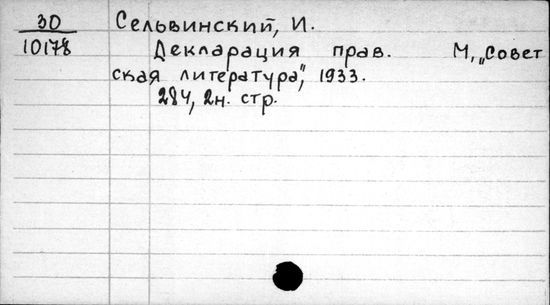 30
10178
Сельвинский, И.
Декларация прав. М, „Совет
ская литература", 1933.
284, 2н. стр.